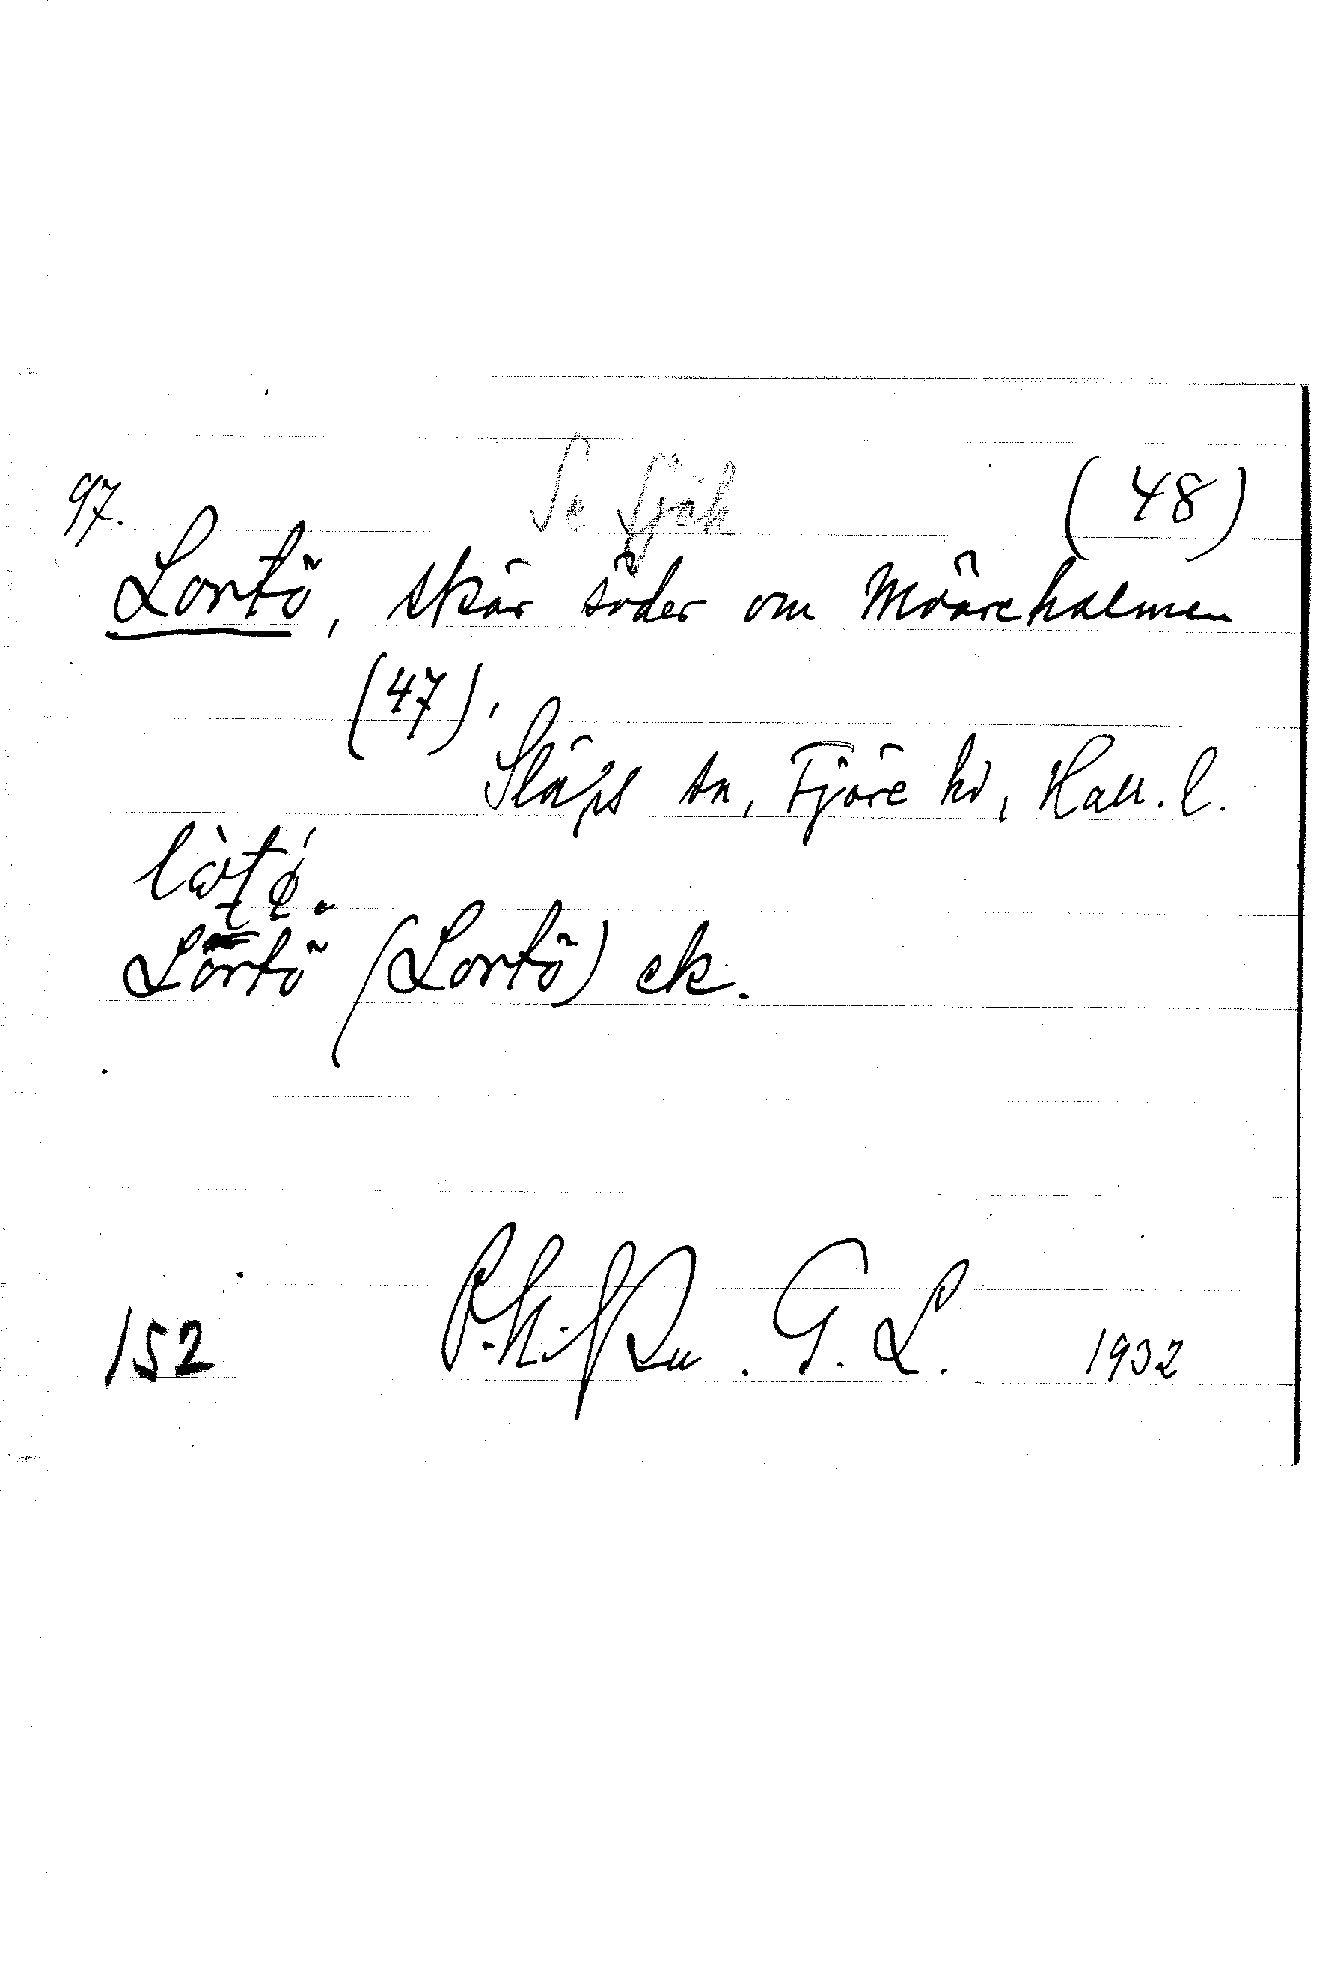 97. Se Sjök (48)
Lortö, skär söder om Mönreholmen
(47),
Släps sn, Fjäre hd, Hall. l.
Lortö (Lortö) ek.
152 G. L. 1932